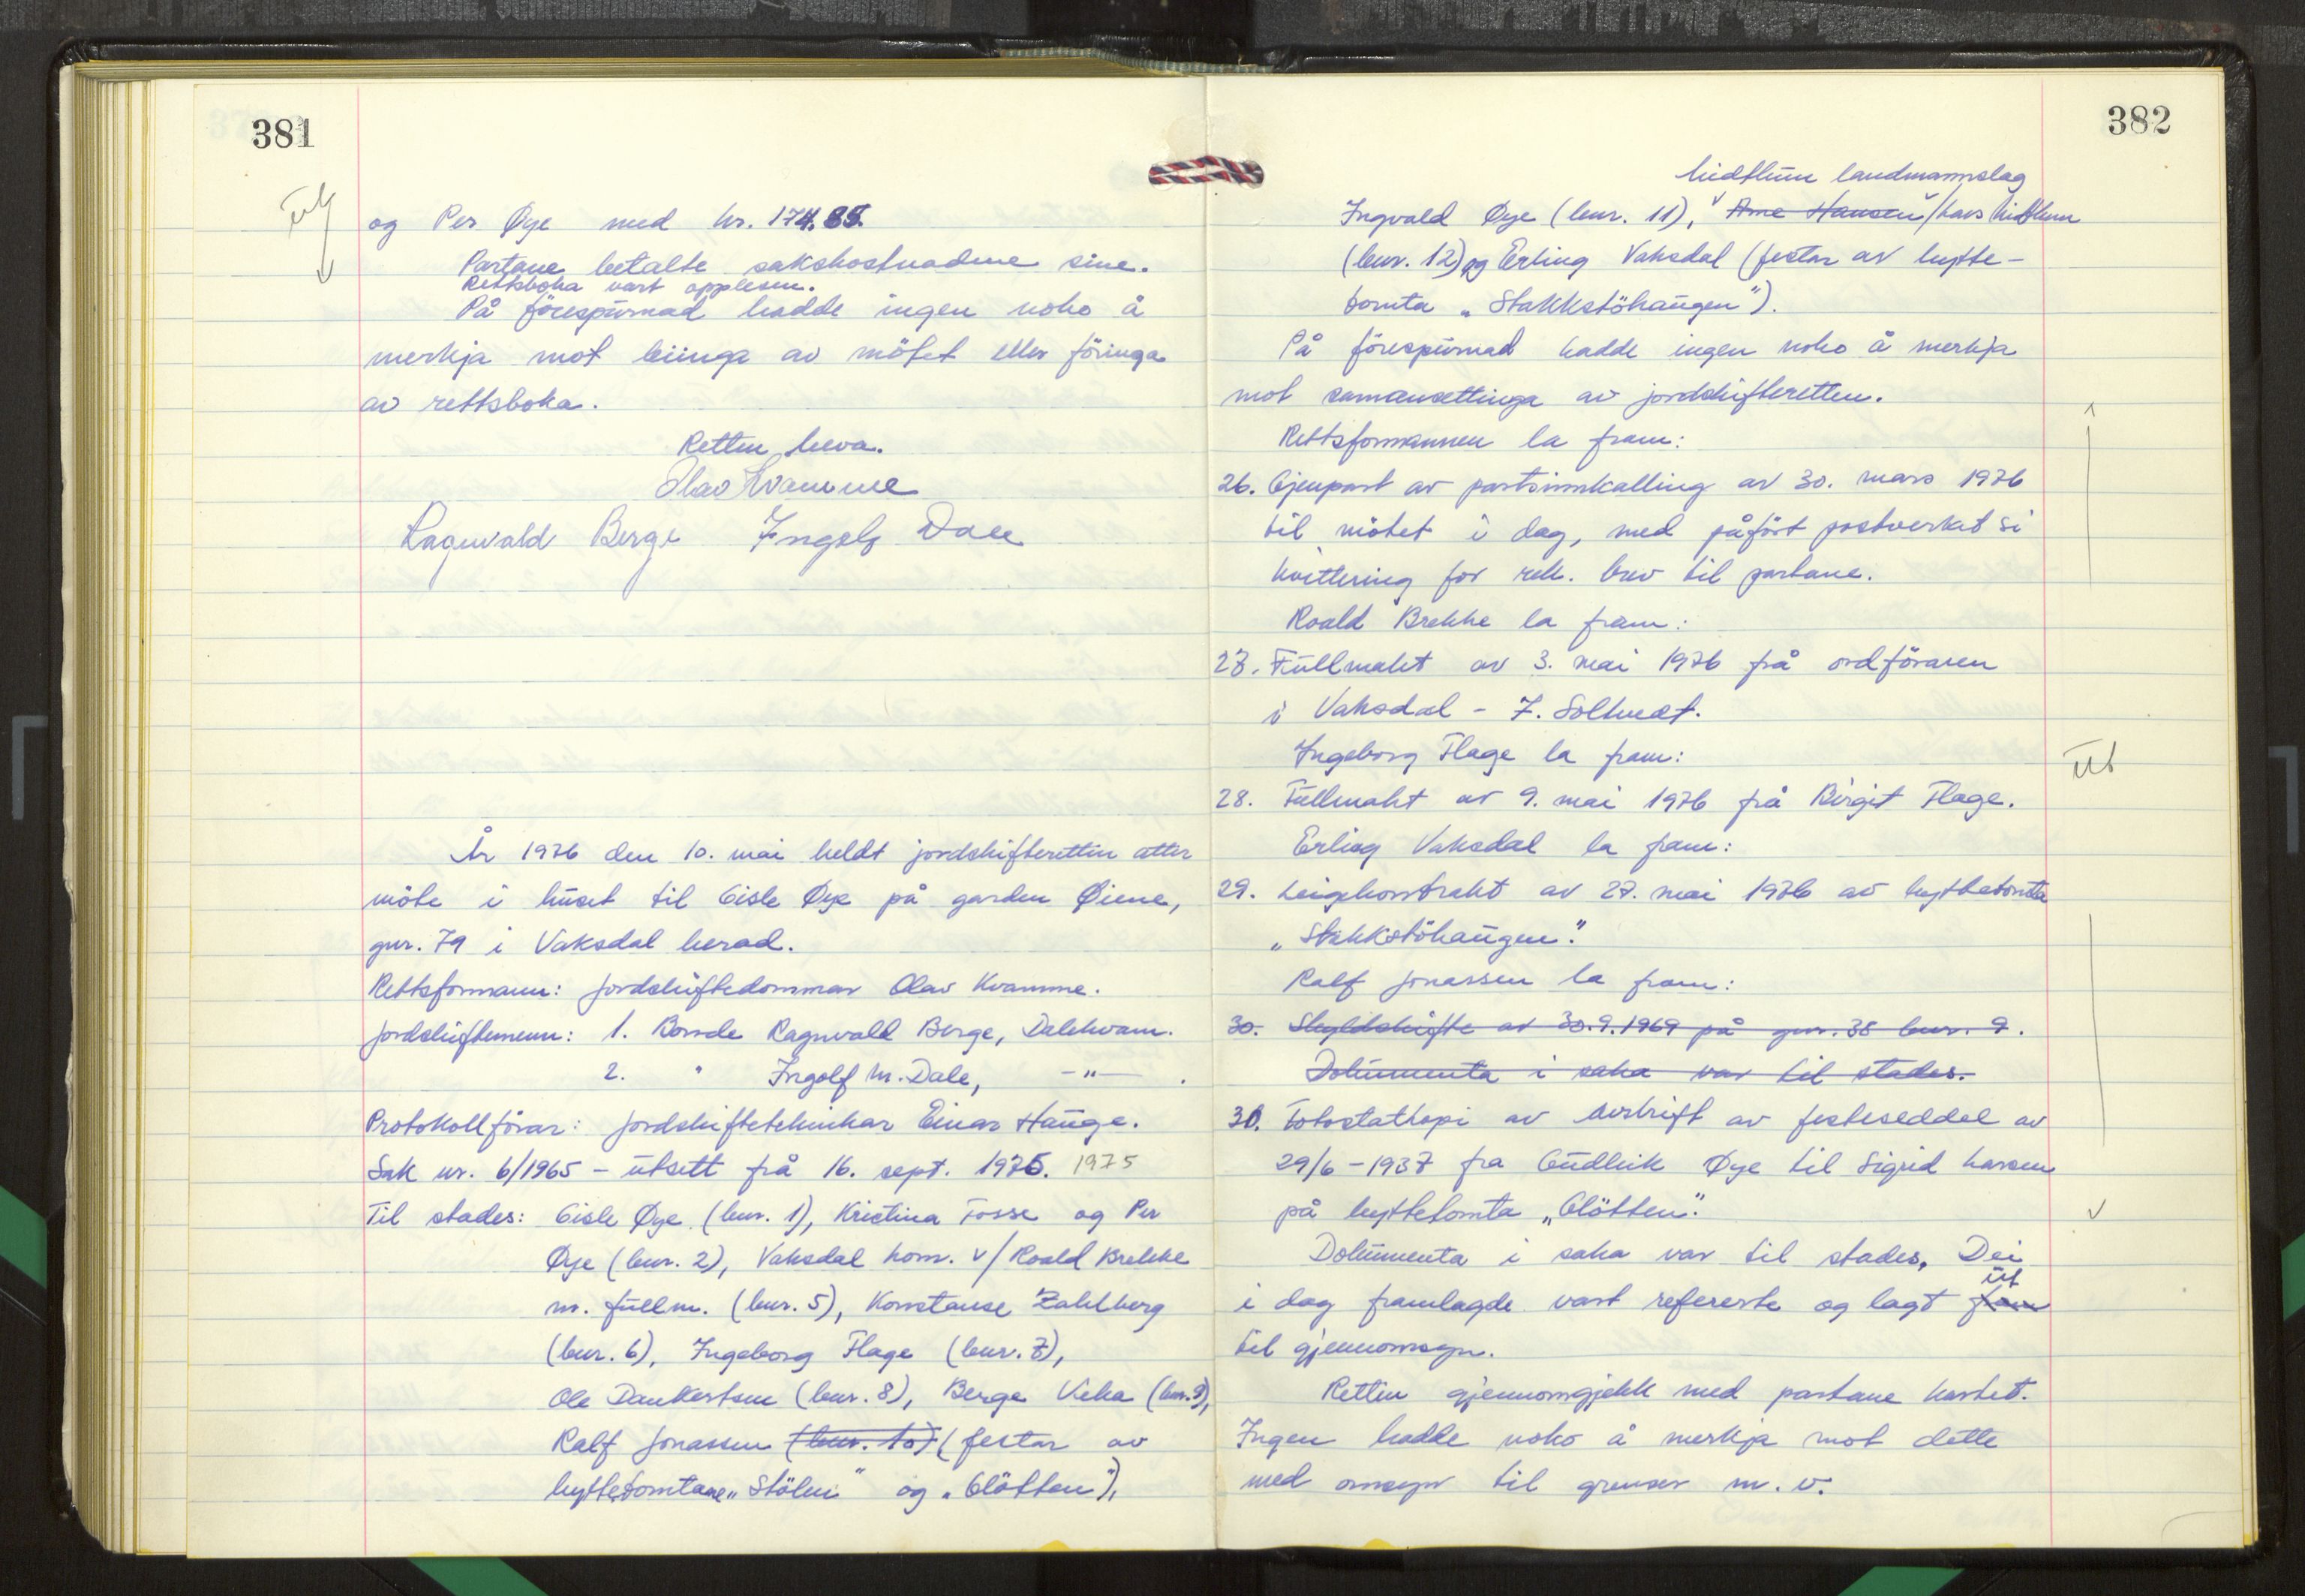 381
Ut
og Per Øye med kr. 174.85.
Partane betalte sakskostnadene sine.
Rettsboka vart opplesen.
På förespurnad hadde ingen noko å
merkja mot leiinga av mötet eller föringa
av rettsboka.
Retten heva.
Olav Kvamme
Ragnvald Berge Ingolf Dale
År 1976 den 10. mai heldt jordskifteretten atter
möte i huset til Gisle Øye på garden Øiene,
gnr. 79 i Vaksdal herad.
Rettsformann: Jordskiftedommar Olav Kvamme.
Jordskiftemenn: 1. Bonde Ragnvald Berge, Dalekvam.
2. " Ingolf M. Dale, -"- .
Protokollförar: Jordskifteteknikar Einar Hauge.
Sak nr. 6/1965 - utsett frå 16. sept. 1975. 1975
Til stades: Gisle Øye (bnr. 1), Kristina Fosse og Per
Øye (bnr. 2), Vaksdal kom. v/ Roald Brekke
m. fullm. (bnr. 5), Konstanse Zahlberg
(bnr. 6), Ingeborg Flage (bnr. 7),
Ole Dankertsen (bnr. 8), Berge Veka (bnr. 9),
Ralf Jonassen (bnr. 10) (festar av
hyttetomtane „Stölen" og „Glötten"),
382
Midttun landmannslag
Ingvald Øye (bnr. 11), v Arne Hansen /Lars Midttun
(bnr. 12) og Erling Vaksdal (festar av hytte-
tomta „Stakkstöhaugen").
På förespurnad hadde ingen noko å merkja
mot samansettinga av jordskifteretten.
Rettsformannen la fram:
26. Gjenpart av partsinnkalling av 30. mars 1976
til mötet i dag, med påfört postverket si
kvittering for rek. brev til partane.
Roald Brekke la fram:
27. Fullmakt av 3. mai 1976 frå ordföraren
i Vaksdal - J. Soltvedt.
Ingeborg Flage la fram:
Ut
28. Fullmakt av 9. mai 1976 frå Birgit Flage.
Erling Vaksdal la fram:
29. Leigekontrakt av 27. mai 1976 av hyttetomta
„Stakkstöhaugen".
Ralf Jonassen la fram:
30. Skyldskifte av 30.9.1969 på gnr. 38 bnr. 9.
Dokumenta i saka var til stades.
30. Fotostatkopi av avskrift av festeseddel av
29/6-1937 fra Gudleik Øye til Sigrid Larsen
på hyttetomta „Glötten".
Dokumenta i saka var til stades. Dei
ut
i dag framlagde vart refererte og lagt fram
til gjennomsyn.
Retten gjennomgjekk med partane kartet.
Ingen hadde noko å merkja mot dette
med omsyn til grenser m. v.